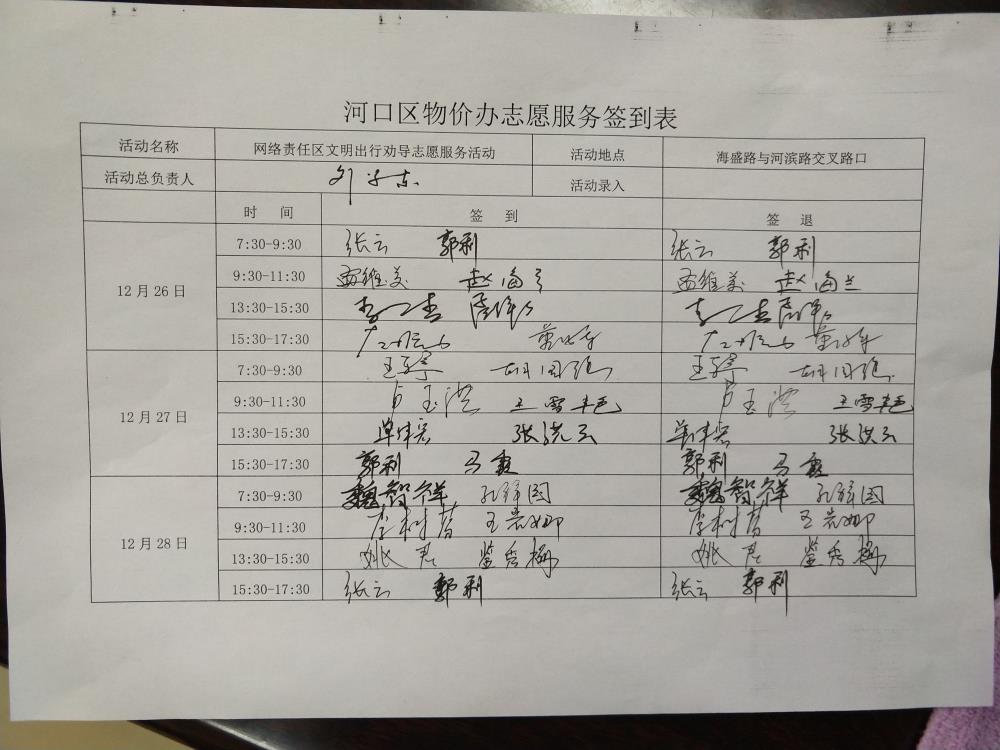 河口区物价办志愿服务签到表
活动名称 网络责任区文明出行劝导志愿服务活动 活动地点 海盛路与河滨路交叉路口
活动总负责人 活动录入
时 间 签 到 签 退
12月26日
7:30-9:30 张云 郭利 张云 郭利
9:30-11:30 贾维美 赵海兰 贾维美 赵海兰
13:30-15:30
15:30-17:30
12月27日
7:30-9:30 王 王
9:30-11:30 卢玉洪 王雪艳 卢玉洪 王雪艳
13:30-15:30 单伟宏 张洪云 单伟宏 张洪云
15:30-17:30 郭利 马霞 郭利 马霞
12月28日
7:30-9:30 魏智祥 魏智祥
9:30-11:30 李树 王岩娜 李树 王岩娜
13:30-15:30 姚君 姚君
15:30-17:30 张云 郭利 张云 郭利